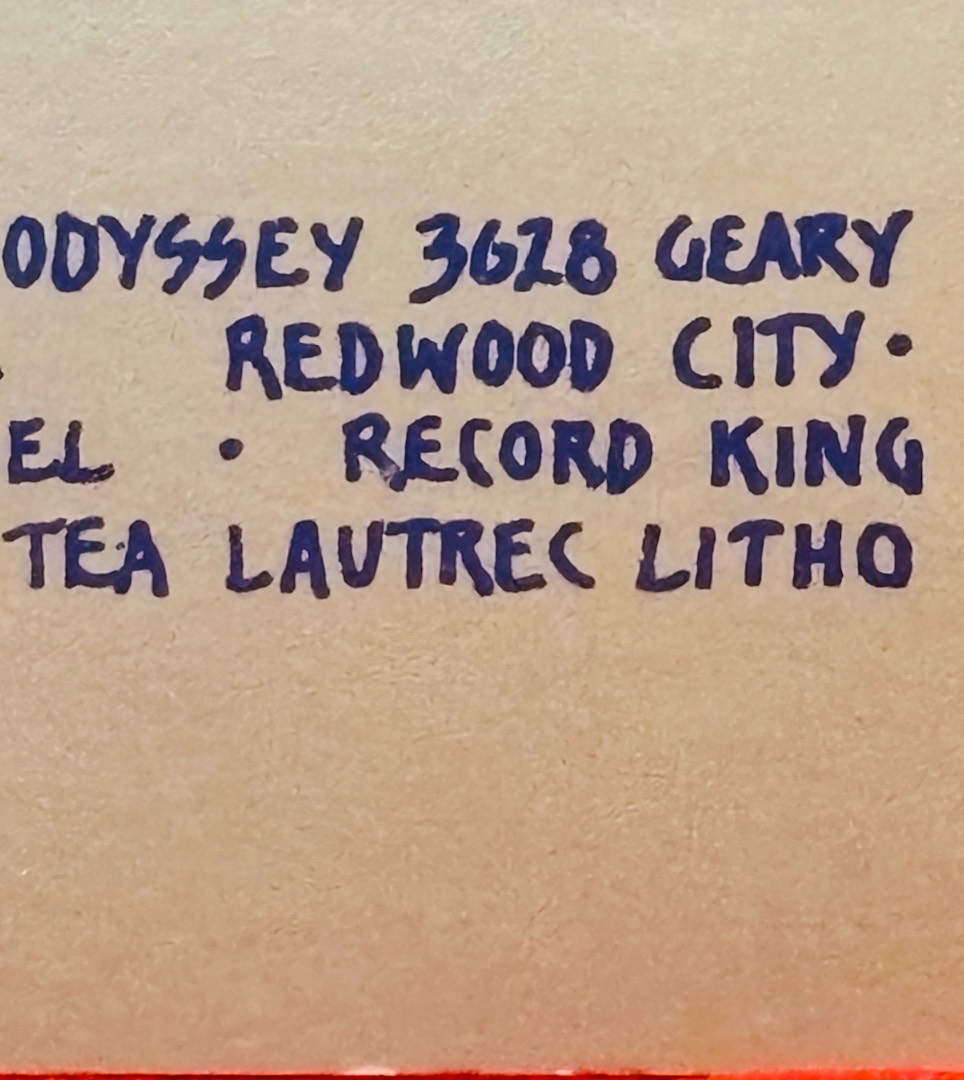 ODYSSEY 3628 GEARY
REDWOOD CITY •
EL • RECORD KING
TEA LAUTREC LITHO